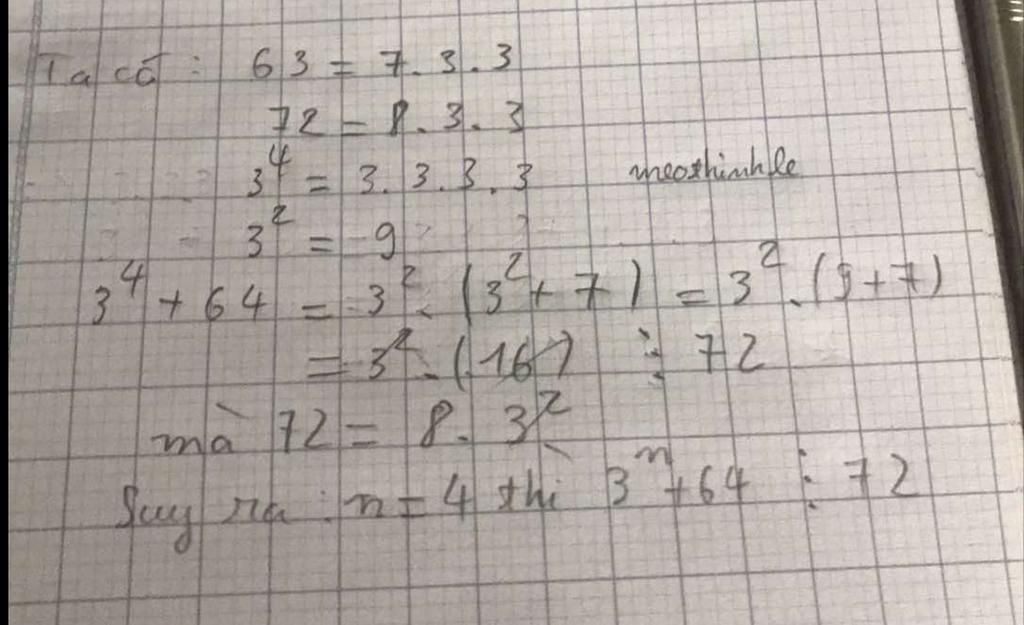 Ta có : 63 = 7.3.3
72 = 8.3.3
3⁴ = 3.3.3.3 meothinhle
3² = 9
3⁴ + 64 = 3². (3² + 7) = 3².(9+7)
= 3².(16) ⋮ 72
mà 72 = 8. 3²
Suy ra : n = 4 thì 3ⁿ+64 ⋮ 72